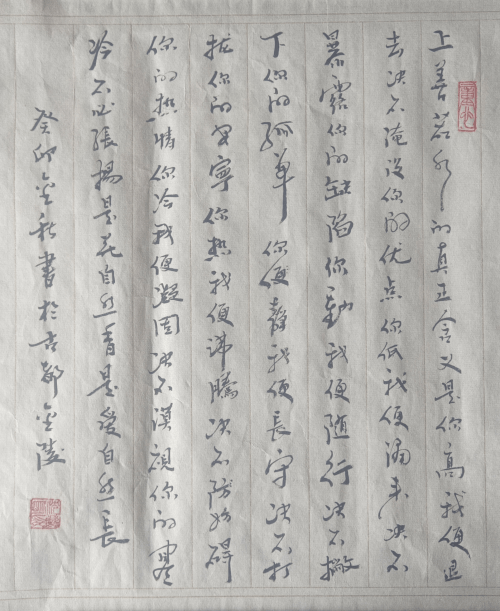 上善若水的真正含义是你高我便退
去决不淹没你的优点你低我便涌来决不
暴露你的缺陷你動我便随行决不撇
下你的孤單你便靜我便長守决不打
扰你的安寧你热我便沸騰决不防妨碍
你的热情你冷我便凝固决不漠視你的寒
冷不必張揚是花自然香是爱自然長
癸卯金秋書於古都金陵